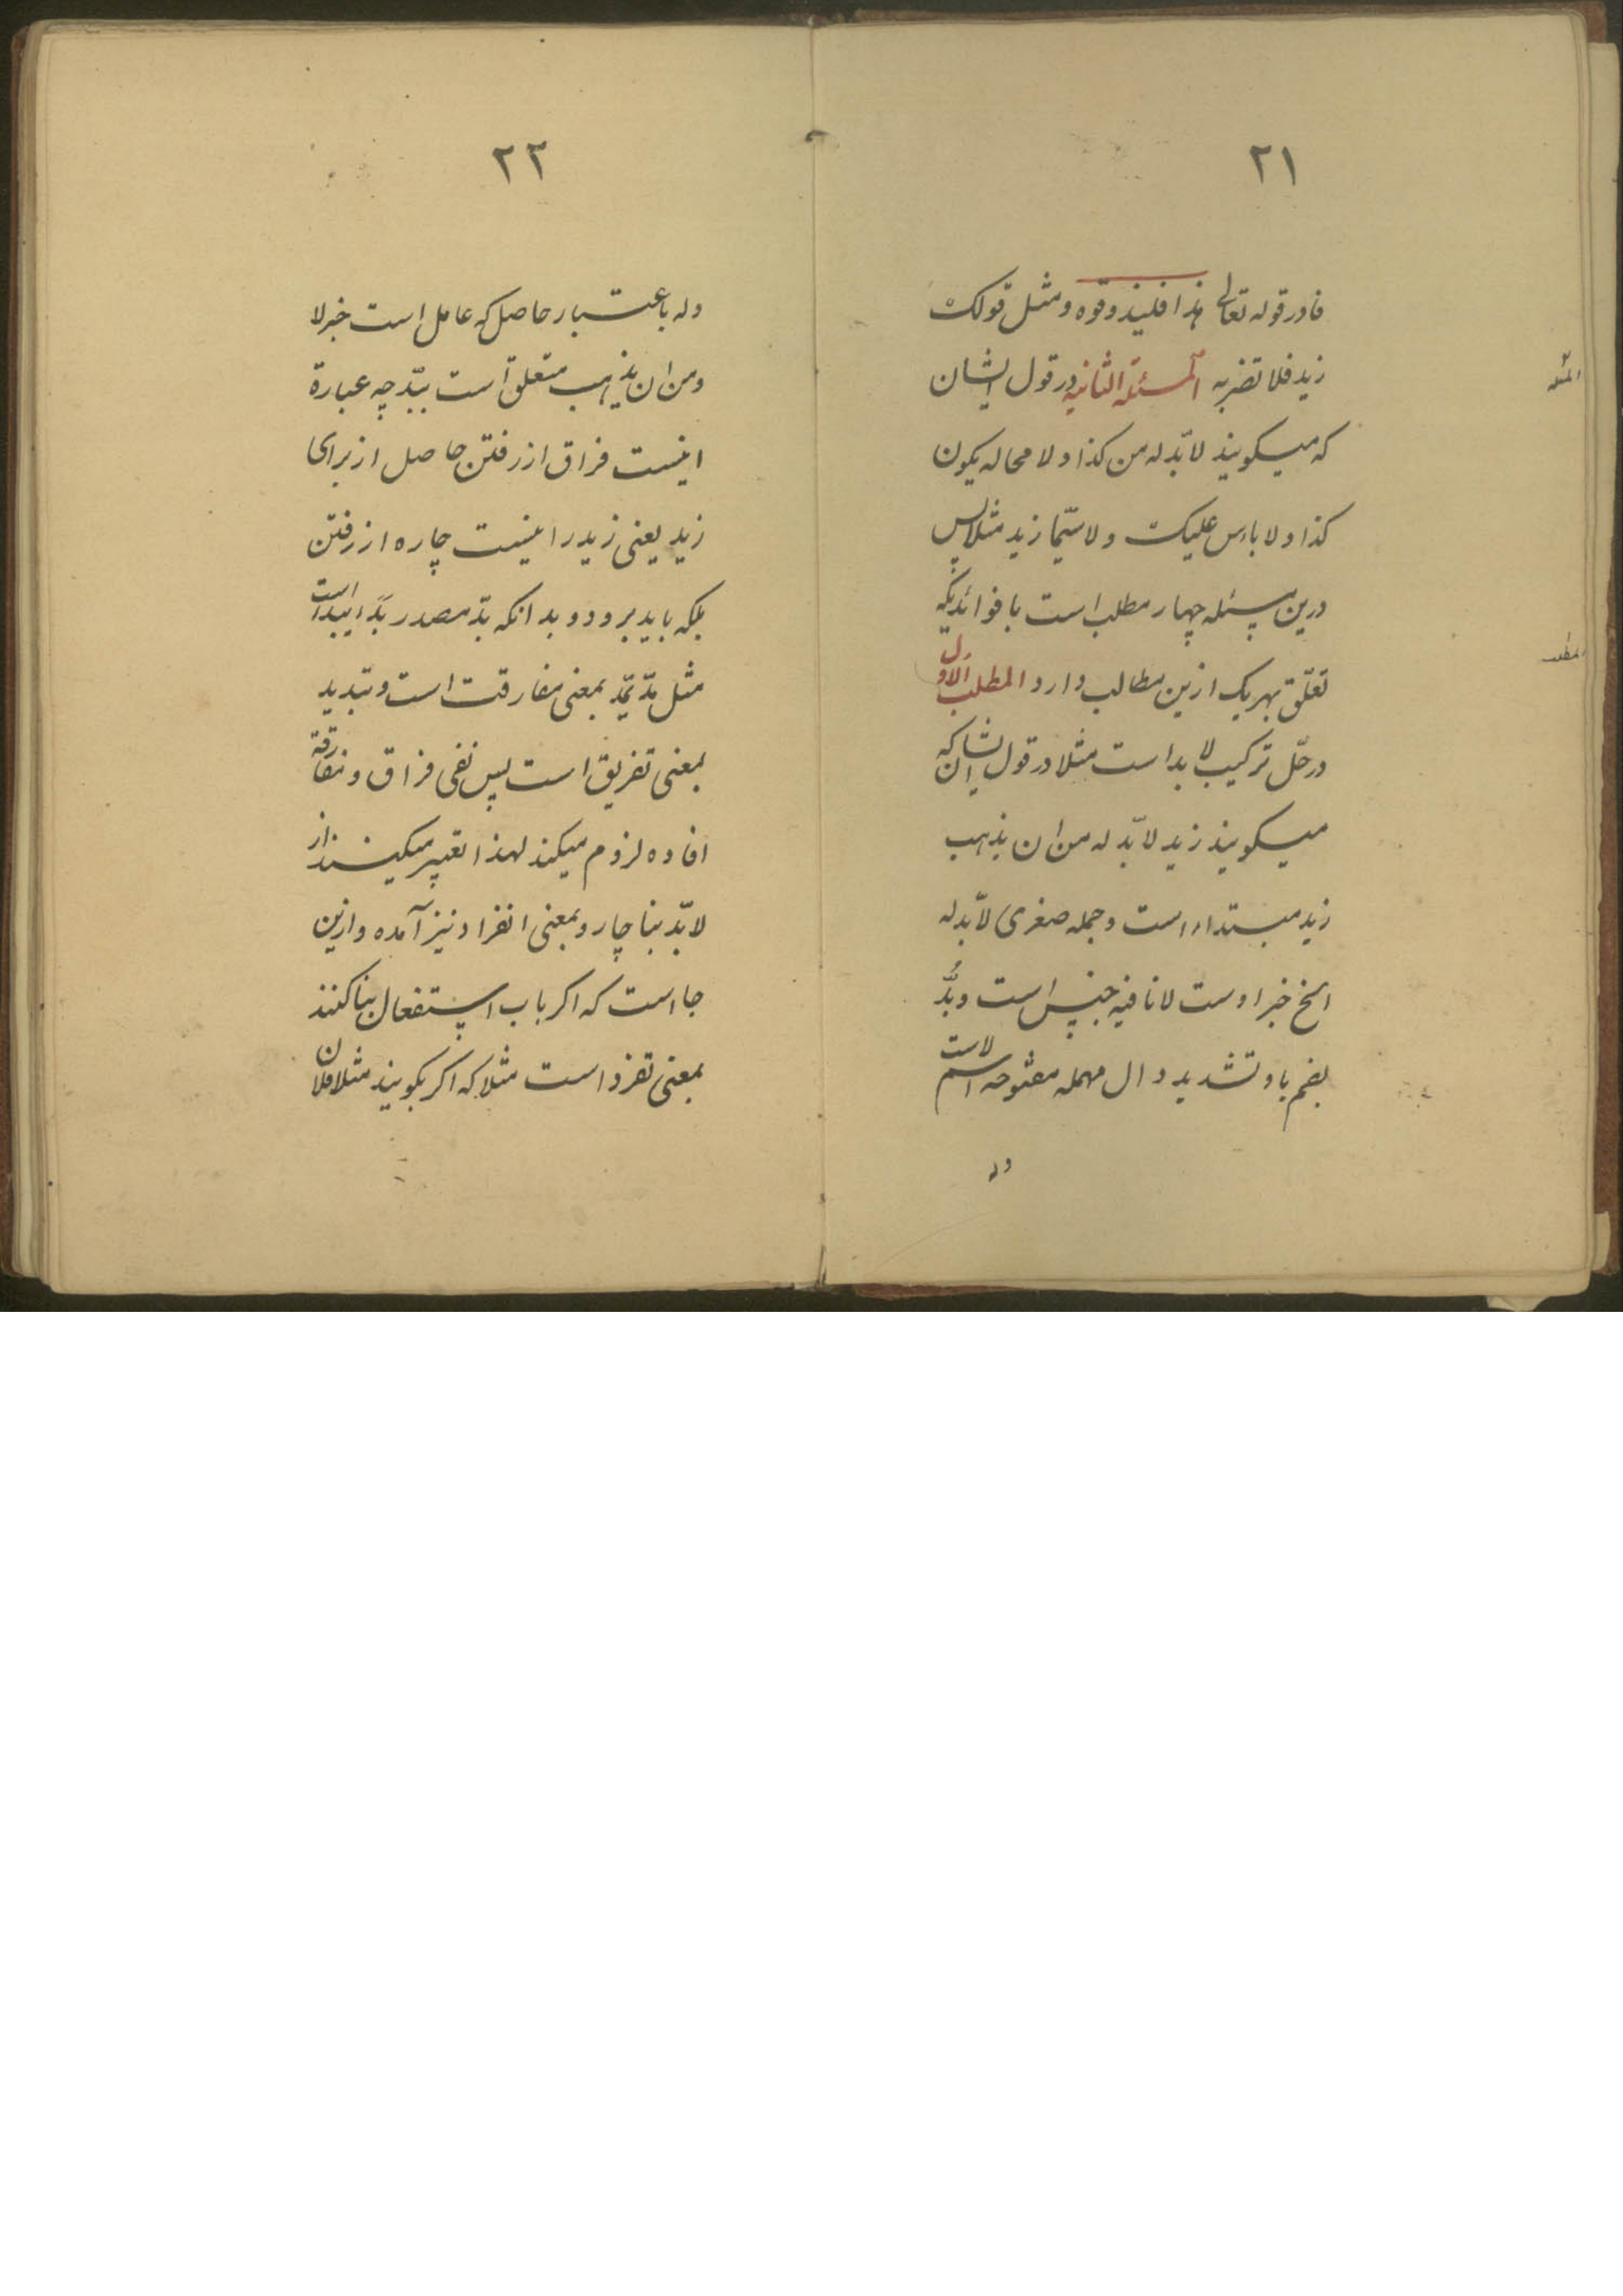 ٢١
فا در قوله تعالی هذا فلیذوقوه و مثل قولک
زید فلا تضربه المسئلة الثانیه در قول ایشان
که میکویند لابّد له من کذا و لا محاله یکون
کذا و لا باس علیک و لا سیّما زید مثلا پس
درین مسئله چهار مطلب است با فوائدیکه
تعلّق بهر یک ازین مطالب دارد المطلب الاول
در حلّ ترکیب لابد است مثلا در قول ایشان که
میکویند زید لابّد له من ان یذهب
زید مبتداء است و جمله صغری لابّد له
الخ خبر اوست لا نافیه جنس است و بُدَّ
بضم با و تشدید دال مهمله مفتوحه اسم لاست
وله
المسئله
المطلب
٢٢
وله باعتبار حاصل که عامل است خبر لا
و من ان یذهب متعلق است ببّد چه عبارة
اینست فراق از رفتن حاصل از برای
زید یعنی زید را نیست چاره از رفتن
بلکه باید برود و بدانکه بدّ مصدر بَدَّ یبدّ است
مثل مدّ یمّد بمعنی مفارقت است و تبدید
بمعنی تفریق است پس نفی فراق و مفارقة
افاده لزوم میکند لهذا تعبیر میکنند از
لابّد بناچار و بمعنی انفراد نیز آمده و ازین
جا است که اکر باب استفعال بنا کنند
بمعنی تفرد است مثلا که اکر بکویند مثلا فلان